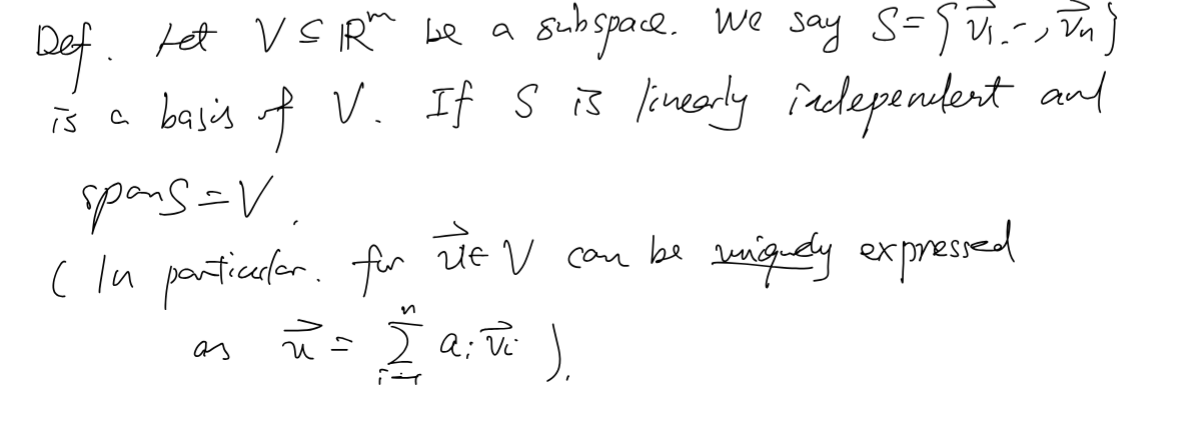 Def. Let V ⊆ ℝᵐ be a subspace. We say S={v⃗₁.-, v⃗ₙ}
is a basis of V. If S is linearly independent and
spanS=V.
( In particular. for u⃗∈ V can be uniquely expressed
as u⃗ = ∑ᵢ₌₁ⁿ aᵢ v⃗ᵢ ).